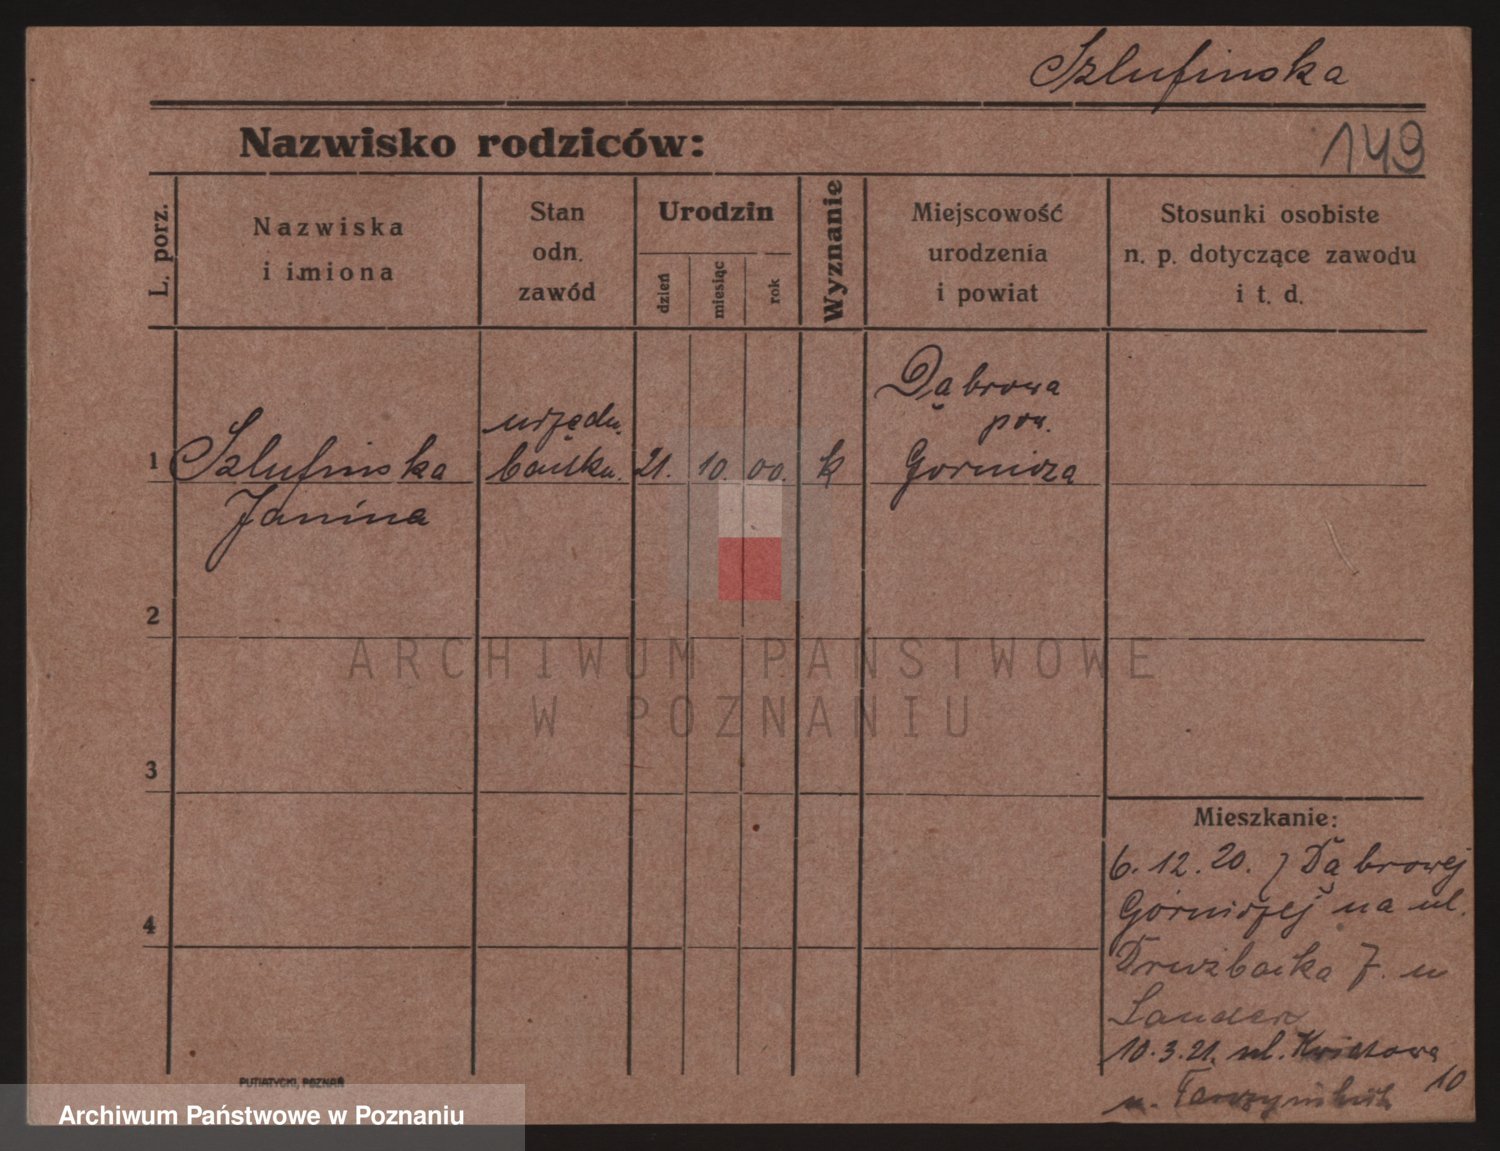 Szlufinska
Nazwisko rodziców:
149
L. porz.
Nazwiska
i imiona
Stan
odn.
zawód
Urodzin
dzień
miesiąc
rok
Wyznanie
Miejscowość
urodzenia
i powiat
Stosunki osobiste
n. p. dotyczące zawodu
i t. d.
1
Szlufinska
Janina
urzędn.
bankn.
21. 10. 00.
k
Dąbrowa
pow.
Gornicza
2
3
4
ARCHIWUM PAŃSTWOWE
W POZNANIU
Mieszkanie:
6. 12. 20. z Dąbrowej
Górniczej na ul.
Druzbacka 7. u
Sander
10.3.21. ul. Kwiatowa
10
u.
PUTIATYCKI, POZNAŃ
Archiwum Państwowe w Poznaniu